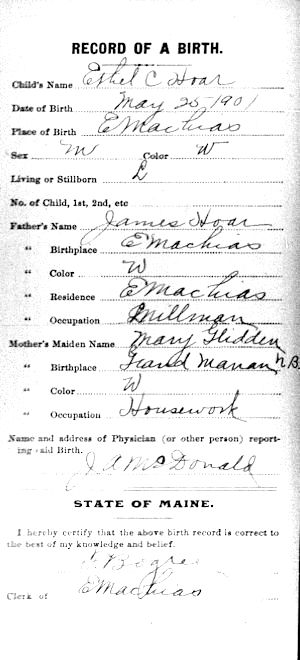 RECORD OF A BIRTH.
Child's Name Ethel C Hoar
Date of Birth May 25-1901
Place of Birth E Machias
Sex M Color W
Living or Stillborn L
No. of Child, 1st, 2nd, etc
Father's Name James Hoar
" Birthplace E Machias
" Color W
" Residence E Machias
" Occupation Millman
Mother's Maiden Name Mary Glidden
" Birthplace Grand Manan N.B.
" Color W
" Occupation Housework
Name and address of Physician (or other person) report-
ing said Birth.
J A McDonald
STATE OF MAINE.
I hereby certify that the above birth record is correct to
the best of my knowledge and belief.
Clerk of E Machias